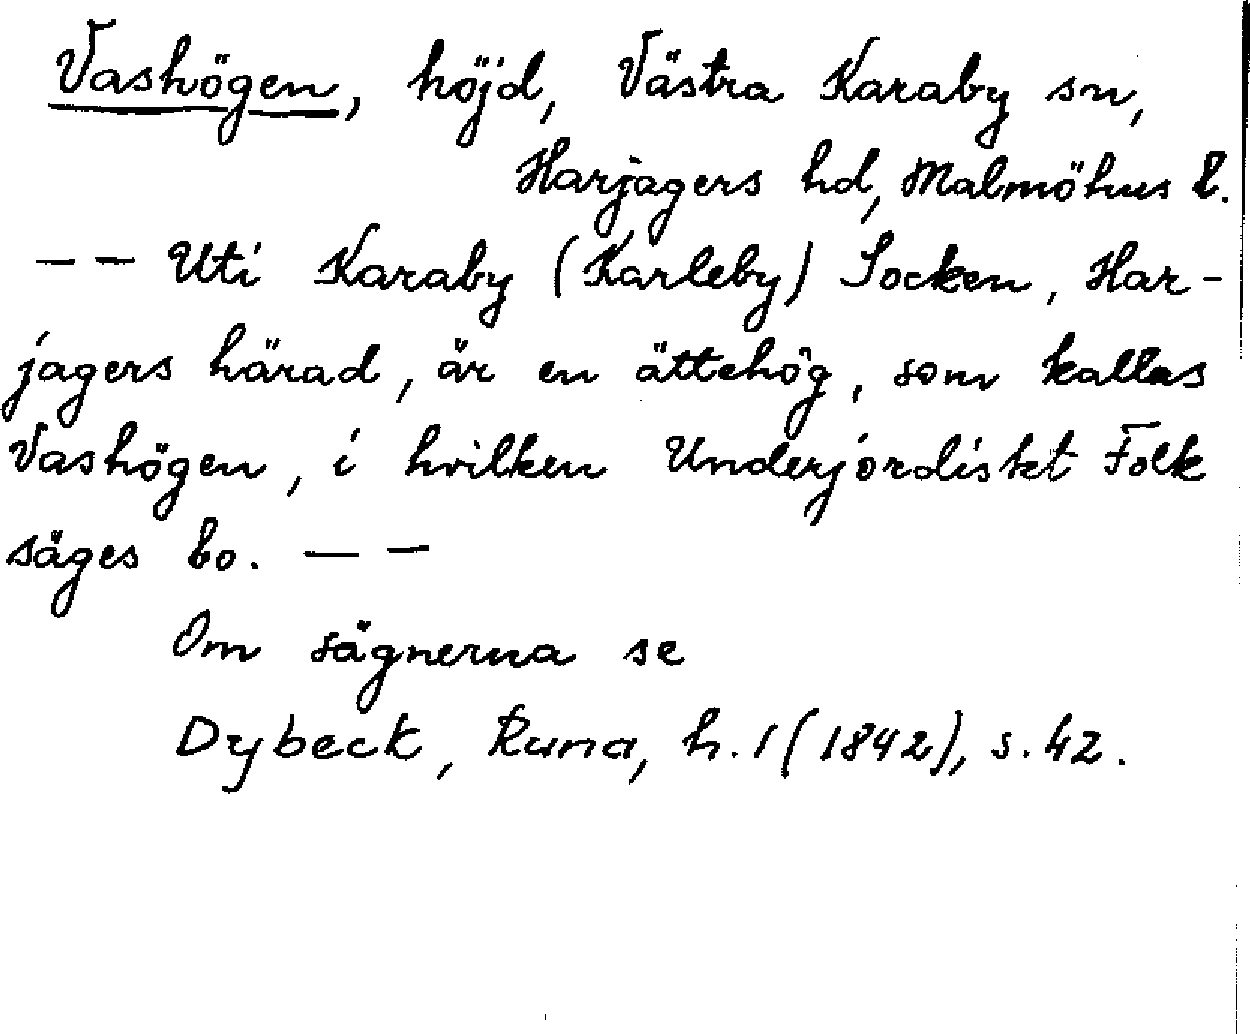 Vashögen, höjd, Västra Karaby sn,
Harjagers hd, Malmöhus l.
— — Uti Karaby (Karleby) Socken, Har-
jagers härad, är en ättehög, som kallas
Vashögen, i hvilken Underjordiskt Folk
säges bo. — —
Om sägnerna se
Dybeck, Runa, h. 1 (1842), s. 42.